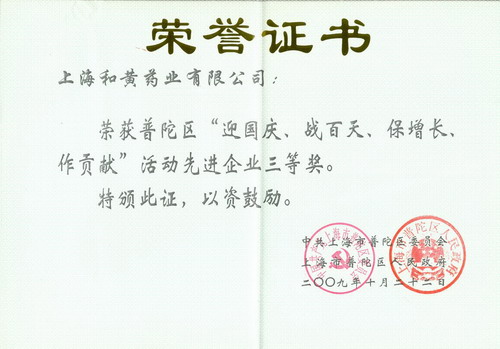 荣誉证书
上海和黄药业有限公司：
荣获普陀区“迎国庆、战百天、保增长、
作贡献”活动先进企业三等奖。
特颁此证，以资鼓励。
中共上海市普陀区委员会
上海市普陀区人民政府
二〇〇九年十月二十二日